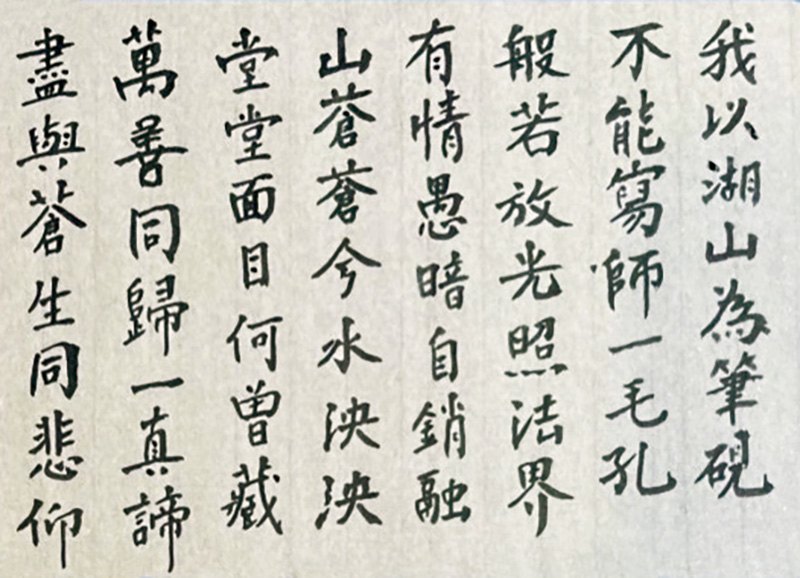 我以湖山為筆硯
不能寫師一毛孔
般若放光照法界
有情愚暗自銷融
山蒼蒼今水泱泱
堂堂面目何曾藏
萬善同歸一真諦
盡與蒼生同悲仰